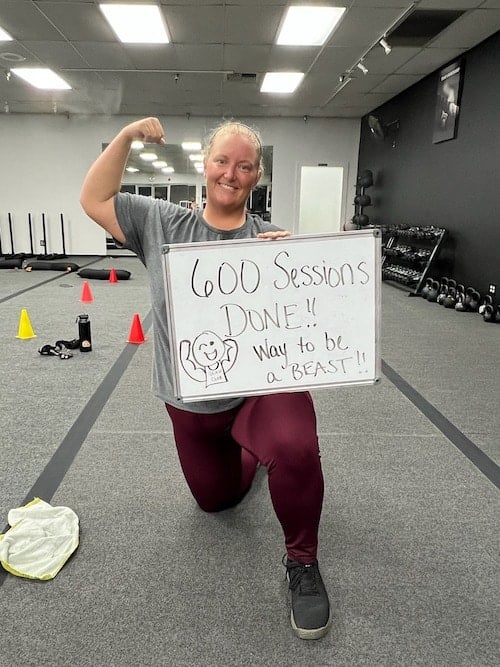 600 Sessions
DONE!!
Way to be
a BEAST!!